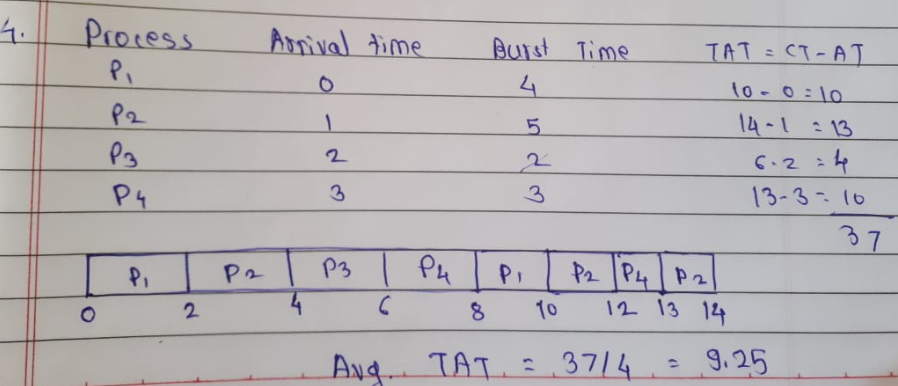 4. Process Arrival time Burst Time TAT = CT - AT
P1 0 4 10 - 0 = 10
P2 1 5 14 - 1 = 13
P3 2 2 6 - 2 = 4
P4 3 3 13 - 3 = 10
37
P1 P2 P3 P4 P1 P2 P4 P2
0 2 4 6 8 10 12 13 14
Avg. TAT = 37/4 = 9.25